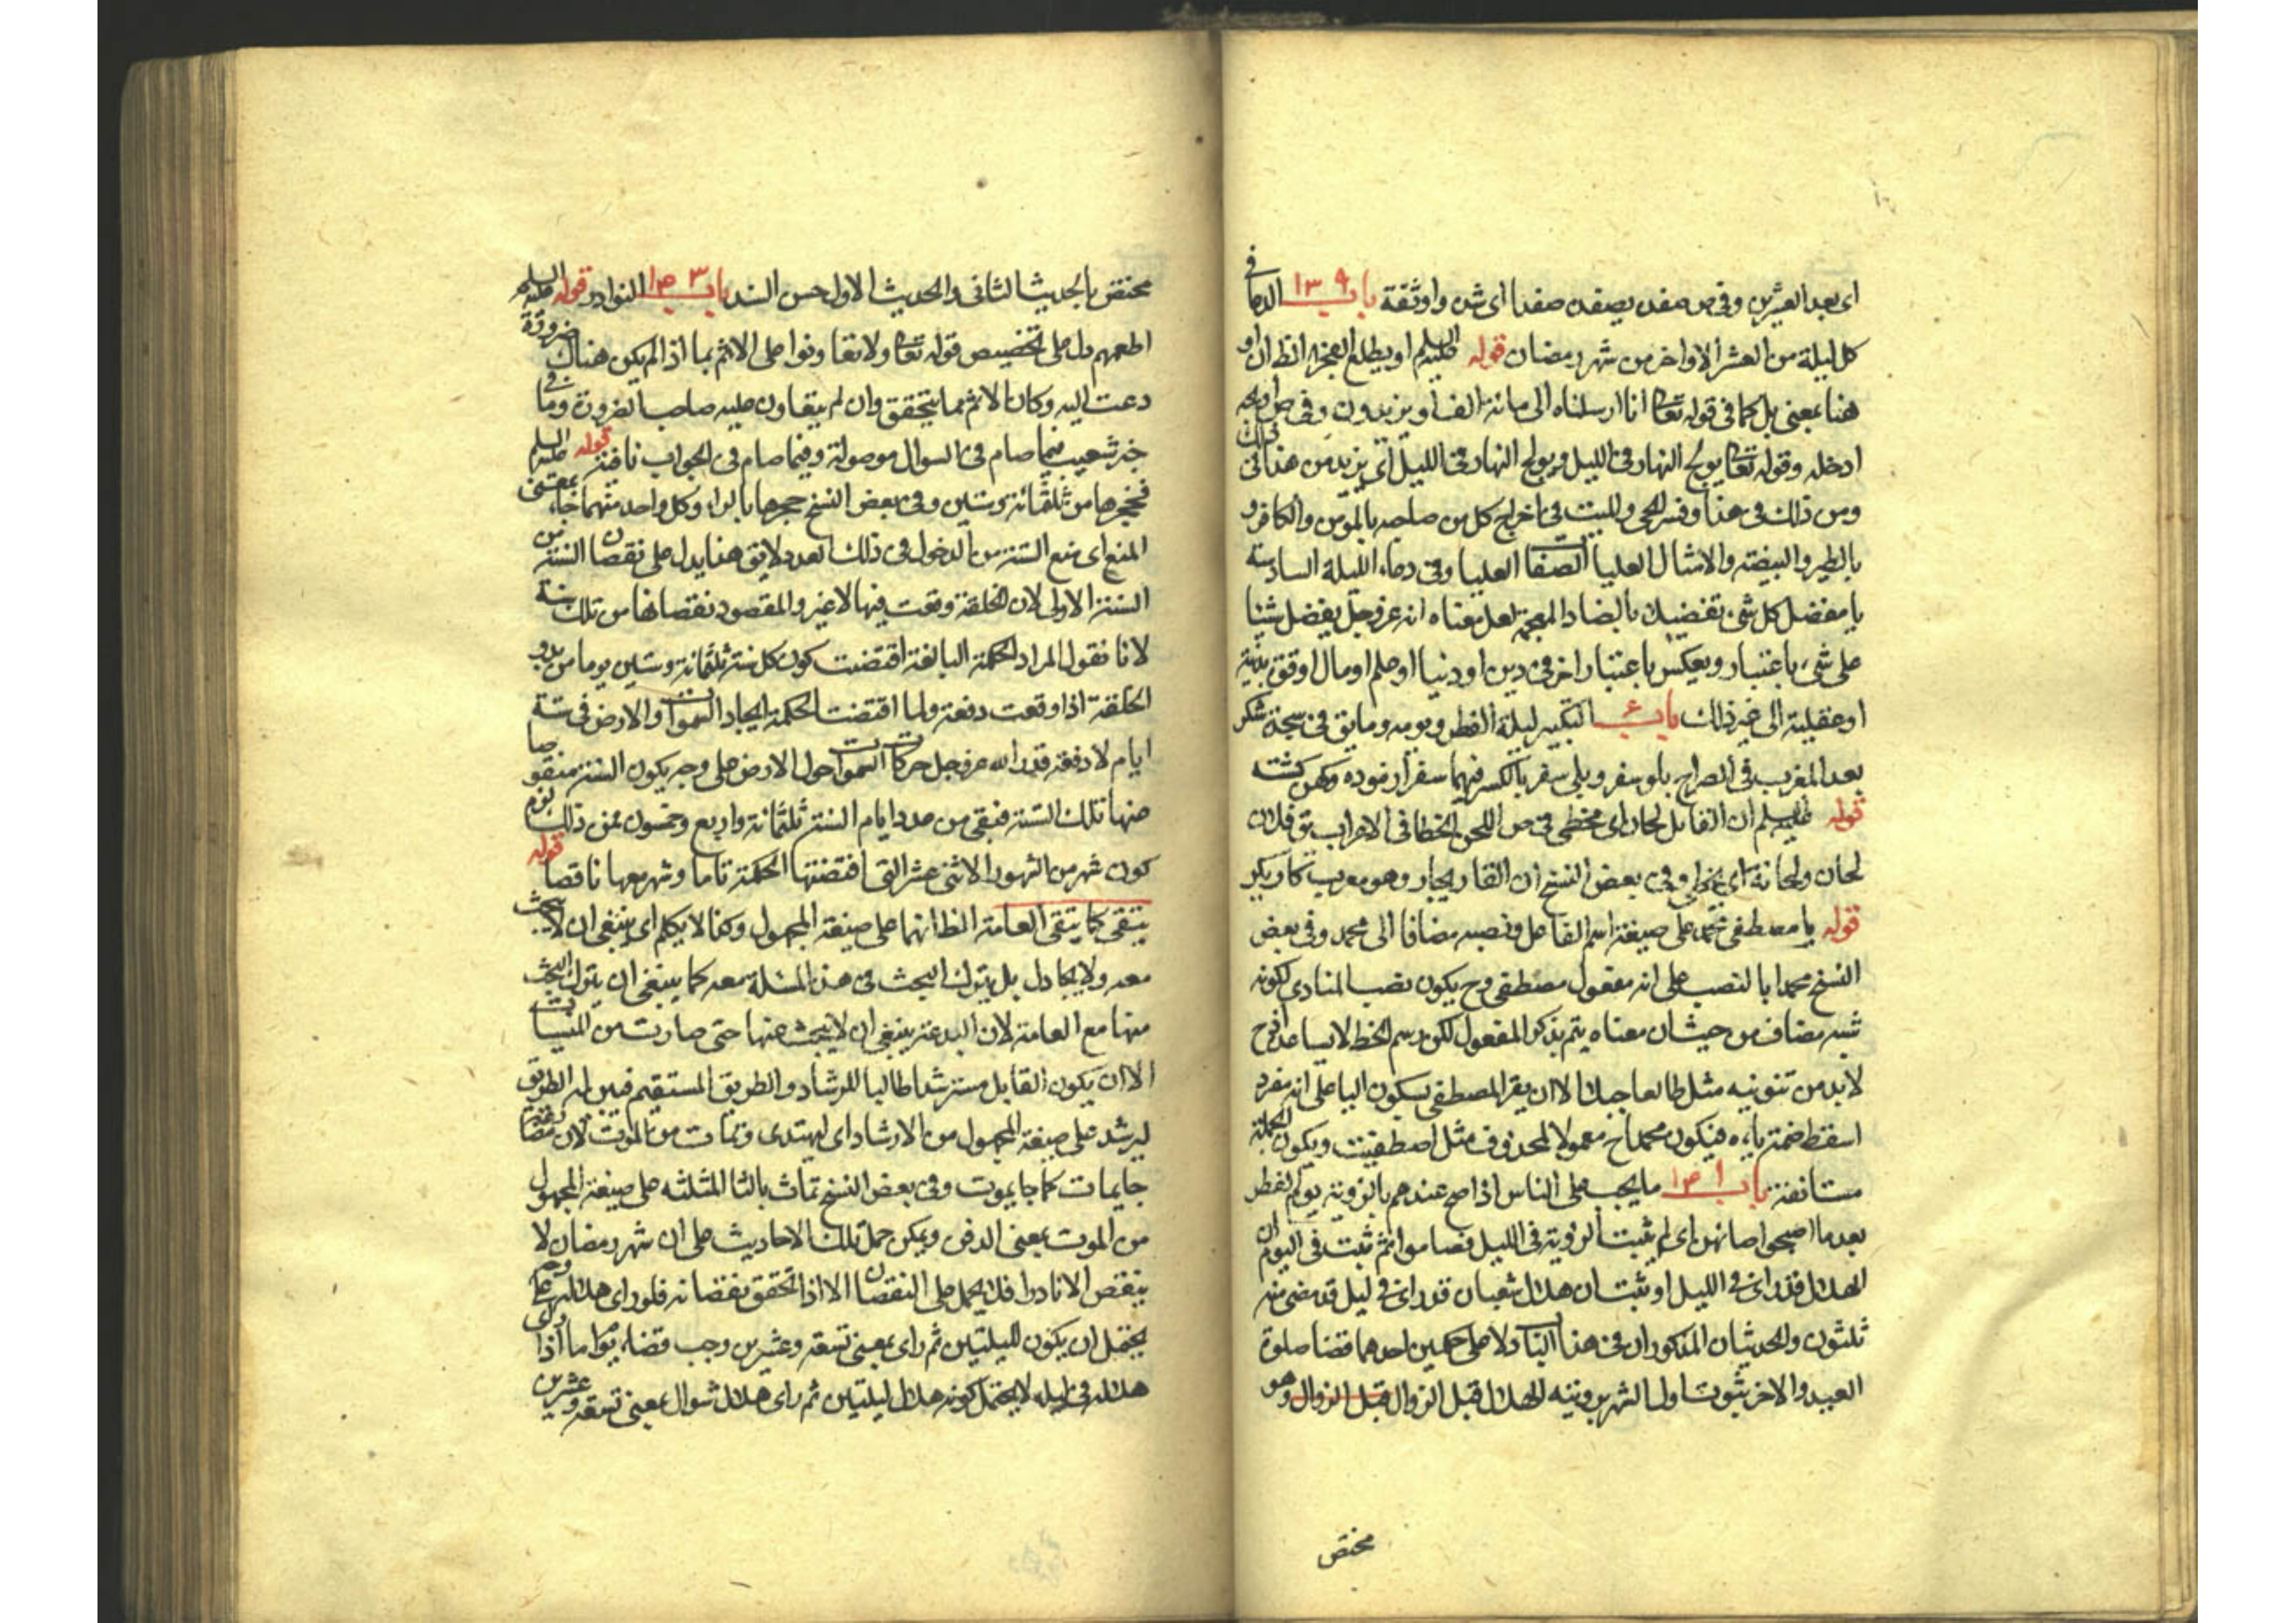 اى بعد العشرين وفى ص صفده يصفده صفدا اى شده واوثقة باب ١٣٩ الدعا فى
كل ليلة من العشر الاواخر من شهر رمضان قوله عليه السلم او يطلع الفجر الظ ان او
هنا بمعنى بل كما فى قوله تعا انا ارسلناه الى مائة الف او يزيدون وفى ص اولجه
ادخله وقوله تعا يولج النهار فى الليل ويولج النهار فى الليل اى يزيد من هذا فى ذلك
ومن ذلك فى هذا وفسر الحى والميت فى اخراج كل من صاحبه بالمومن والكافر و
بالطير والبيضة والامثال العليا الصفات العليا وفى دعاء الليلة السادسة
يا مفضل كل شىء تفضيلا بالضاد المعجمة لعل معناه انه عز وجل يفضل شيئا
على شىء باعتبار ويعكس باعتبار اخر فى دين او دنيا او علم او مال او قوة بدنية
او عقلية الى غير ذلك باب التكبير ليلة الفطر ويومه وما يق فى سجدة شكر
بعد المغرب فى الصراح بلو سفر وبلى سفر بالكسر فيهما سفر ازموده وكهن كشته
قوله عليه السلم ان القائل لحان اى مخطى فى ص اللحن الخطا فى الاعراب يق فلان
لحان ولحانة اى يخطى وفى بعض النسخ ان القاريجار وهو معرب كاريكر
قوله يا مصطفى محمد على صيغة اسم الفاعل ونصبه مضافا الى محمد وفى بعض
النسخ محمدا بالنصب على انه مفعول مصطفى وح يكون نصب المنادى لكونه
شبه مضاف من حيث ان معناه يتم بذكر المفعول لكن رسم الخط لا يساعده اذ ح
لا بد من تنوينه مثل طالعا جبلا الا ان يقرا المصطفى بسكون اليا على انه مفرد
اسقط ضمة يائه فيكون محمدا ح معمولا لمحذوف مثل اصطفيت ويكون الجملة
مستانفة باب ١٤١ ما يجب على الناس اذا صح عندهم بالرؤية يوم الفطر
بعد ما اصبحوا صائمين اى لم يثبت الرؤية فى الليل فصاموا ثم ثبت فى اليوم ان
الهلال قد راى فى الليل او ثبت ان هلال شعبان قد راى فى ليل قد مضى منه
ثلثون والحديثان المذكوران فى هذا الباب دلا على حكمين احدهما قضا صلوة
العيد والاخر ثبوت اول الشهر برؤيته الهلال قبل الزوال قبل الزوال وهو
مختص
مختص بالحديث الثانى والحديث الاول حسن السند باب ١٤٣ النوادر قوله عليه السلم
اطعمهم دل على تخصيص قوله تعا ولا تعاونوا على الاثم بما اذا لم يكن هناك ضرورة
دعت اليه وكان الاثم مما يتحقق وان لم يتعاون عليه صاحب الضرورة وما فى
خبر شعيب فيما صام فى السوال موصولة وفيما صام فى الجواب نافية قوله عليه السلم
فحجزها من ثلثمائة وستين وفى بعض النسخ حجرها بالراء وكل واحد منهما جاء بمعنى
المنع اى منع السنة من الدخول فى ذلك العدد لا يق هذا يدل على نقصان السنة من
السنة الاولى لان الخلقة وقعت فيها لا غير والمقصود نقصانها من تلك ستة
لانا نقول المراد الحكمة البالغة اقتضت كون كل سنة ثلثمائة وستين يوما من بدو
الخلقة اذا وقعت دفعة ولما اقتضت الحكمة ايجاد السموات والارض فى ستة
ايام لا دفعة قدر الله عز وجل حركات السموات حول الارض على وجه يكون السنة منقوصا
منها تلك الستة فبقى من عدد ايام السنة ثلثمائة واربع وخمسون فمن ذلك لزم
كون شهر من الشهور الاثنى عشر التى اقتضتها الحكمة تاما وشهر معها ناقصا قوله
يتقى كما يتقى العامة الظ انهما على صيغة المجهول وكذا لا يكلم اى ينبغى ان لا يبحث
معه ولا يجادل بل يترك البحث فى هذه المسئلة معه كما ينبغى ان يترك البحث
منها مع العامة لان البدعة ينبغى ان لا يبحث عنها حتى صارت من المنسيات
الا ان يكون القايل مسترشدا طالبا للرشاد والطريق المستقيم فبين له الطريق
ليرشد على صيغة المجهول من الارشاد اى ليهتدى وتمات من الموت لان مضارعة
جا يمات كما جا يموت وفى بعض النسخ تماث بالثا المثلثه على صيغة المجهول
من الموت بمعنى الدفى ويمكن حمل تلك الاحاديث على ان شهر رمضان لا
ينقص الا نادرا فلا يحمل على النقصان الا اذا تحقق نقصانه فلو راى هلاله على وجه
يحتمل ان يكون لليلتين ثم راى بمعنى تسعة وعشرين وجب قضاء يوم اما اذا راى
هلاله فى ليله لا يحتمل كونه هلال ليلتين ثم راى هلال شوال بمعنى تسعة وعشرين